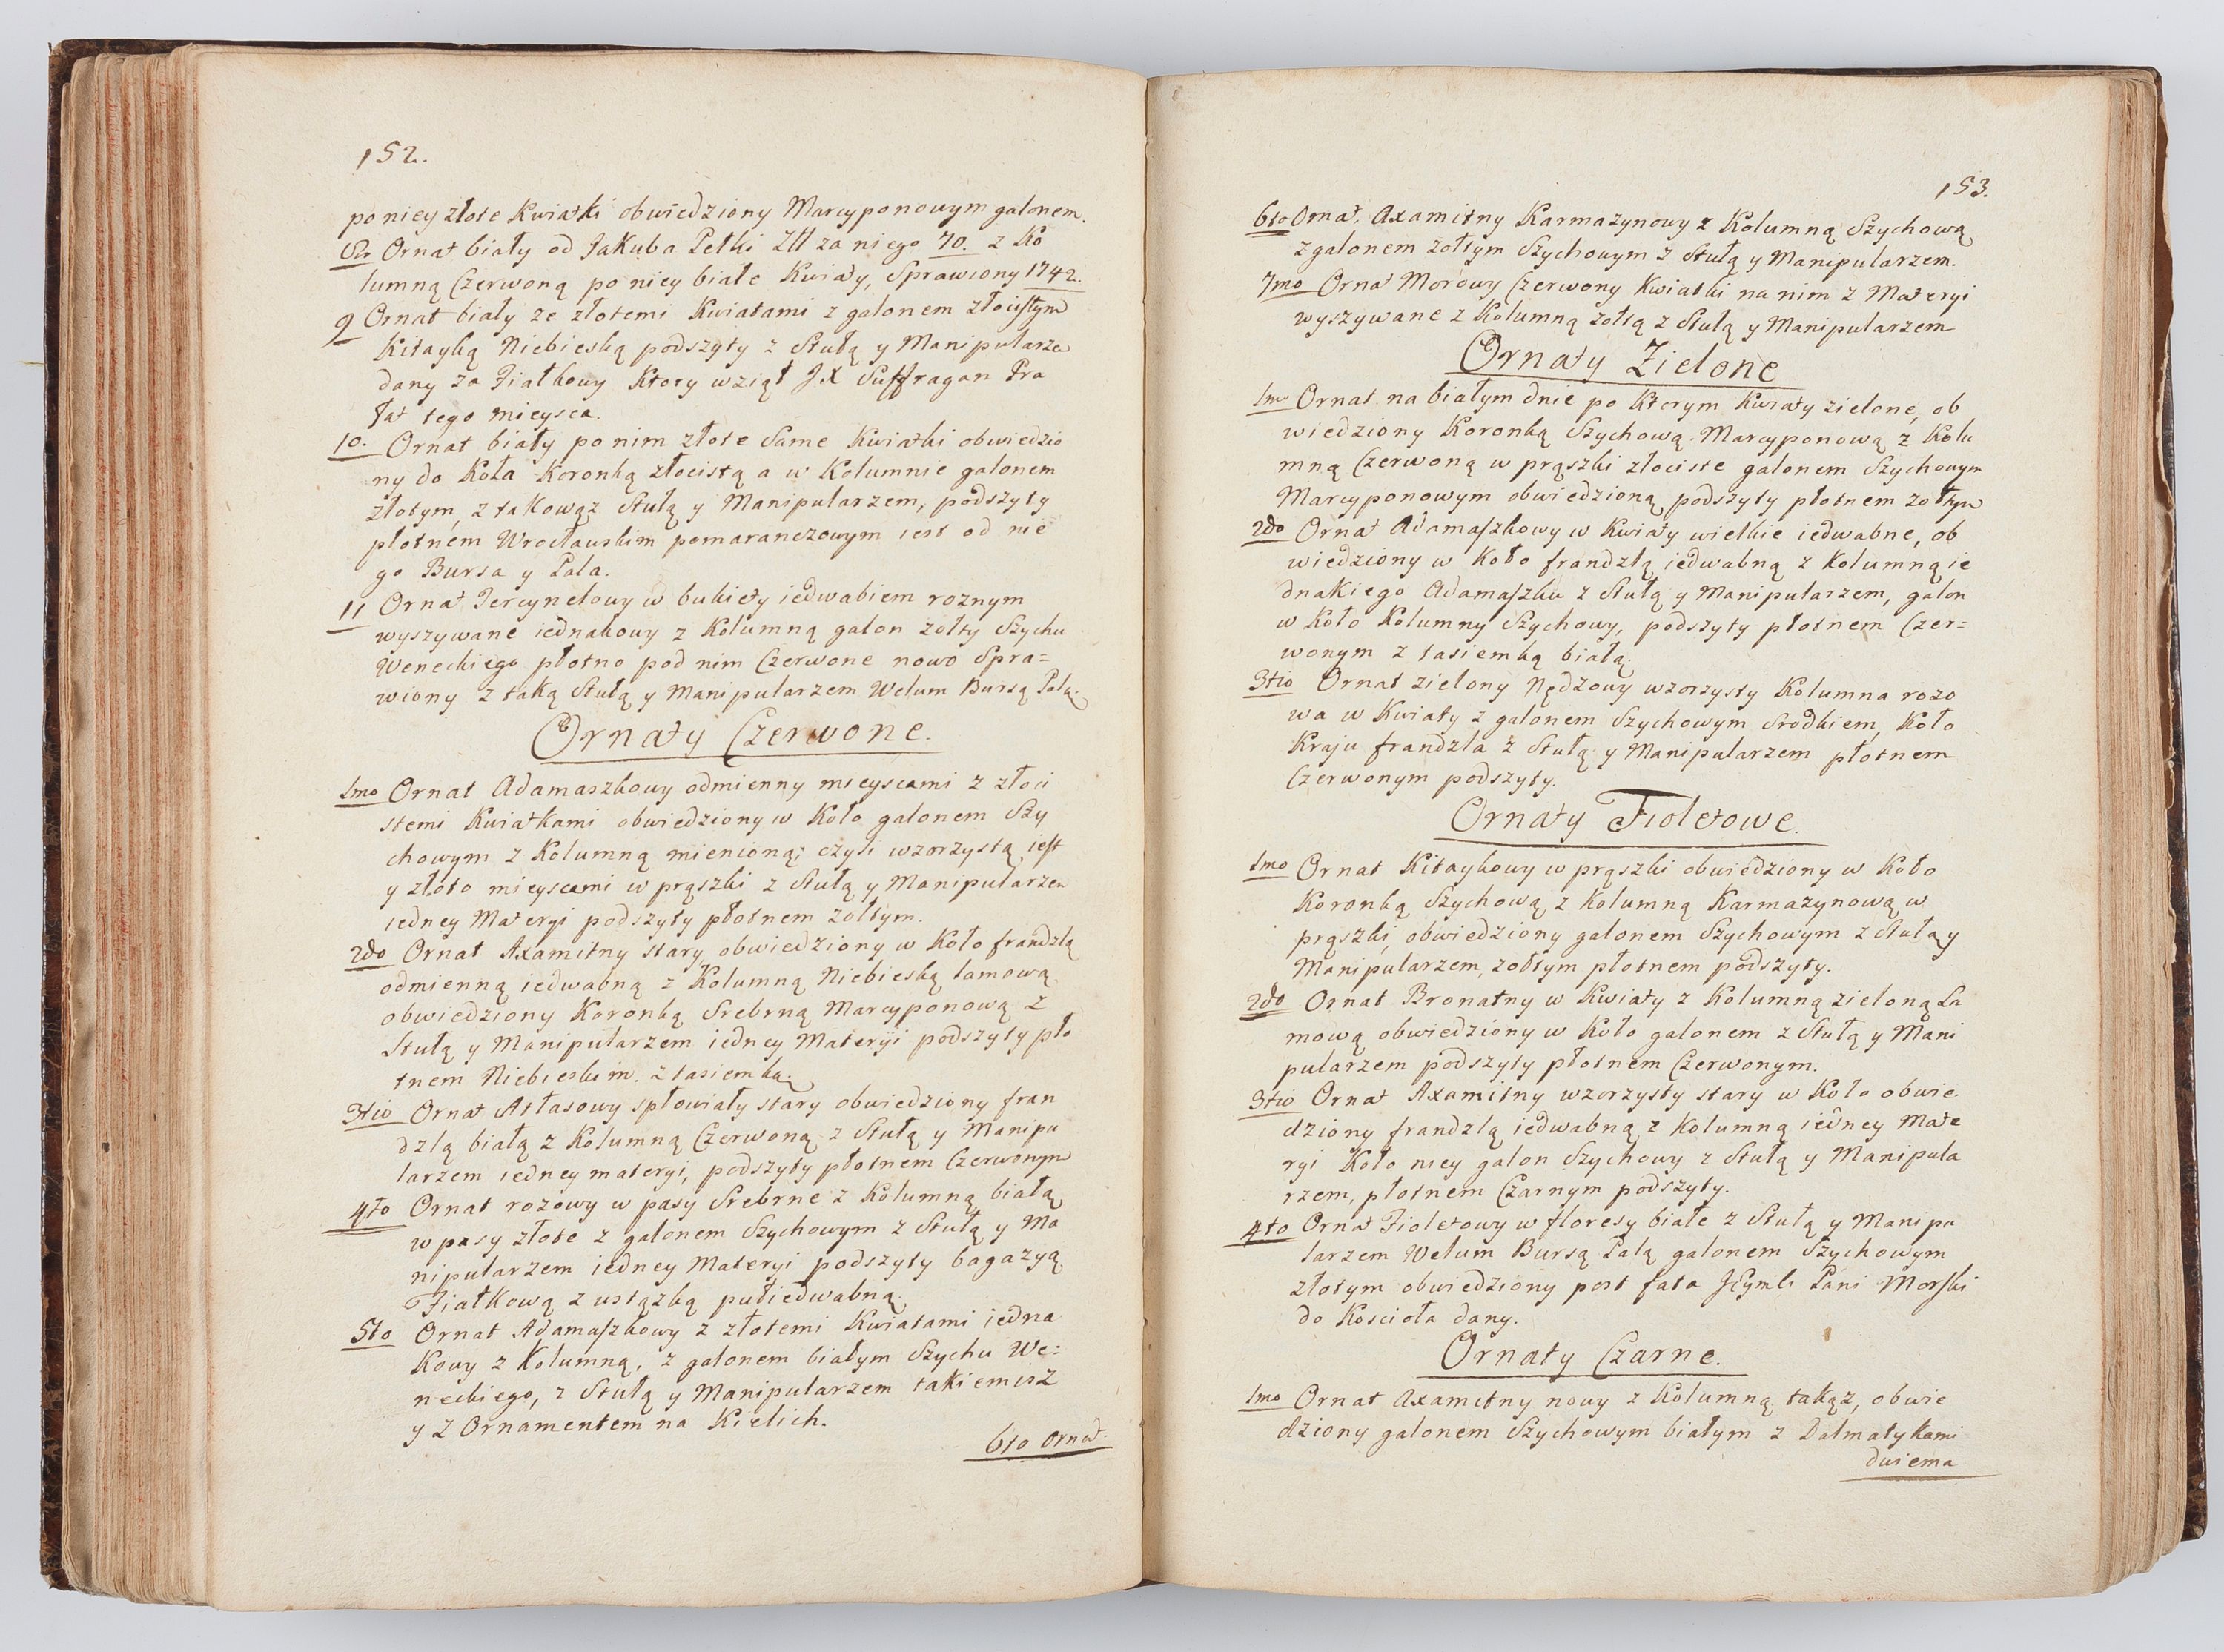 152.
po niey złote Kwiatki obwiedziony Marcyponowym galonem.
8. Ornat biały od Jakuba Petki Zł za niego 70. z Ko
lumną Czerwoną po niey białe Kwiaty, Sprawiony 1742.
9 Ornat biały ze złotemi Kwiatami z galonem złocistym
Kitayką Niebieską podszyty z Stułą y Manipularze
dany za Fiałkowy Ktory wziął JX Suffragan Pra
łat tego mieysca.
10. Ornat biały po nim złote Same Kwiatki obwiedzio
ny do Koła Koronką złocistą a w Kolumnie galonem
złotym, z takowąż Stułą y Manipularzem, podszyty
płotnem Wrocławskim pomaranczowym iest od nie
go Bursa y Pala.
11 Ornat Tercynelowy w bukiety iedwabiem roznym
wyszywane iednakowy z Kolumną galon zołty Szychu
Weneckiego płotno pod nim Czerwone nowo Spra=
wiony z taką Stułą y Manipularzem Welum Bursą Palą.
Ornaty Czerwone.
1mo Ornat Adamaszkowy odmienny mieyscami z złoci
stemi Kwiatkami obwiedziony w Koło galonem Szy
chowym z Kolumną mienioną; czyli wzorzystą iest
y złoto mieyscami w prąszki z Stułą y Manipularzem
iedney Materyi podszyty płotnem zołtym.
2do Ornat Axamitny stary, obwiedziony w Koło frandzlą
odmienną iedwabną z Kolumną Niebieską lamową
obwiedziony Koronką Srebrną Marcyponową z
Stułą y Manipularzem iedney Materyi podszyty pło
tnem Niebieskim. z tasiemką.
3tio Ornat Atłasowy spłowiały stary obwiedziony fran
dzlą białą z Kolumną Czerwoną z Stułą y Manipu
larzem iedney materyi, podszyty płotnem Czerwonym
4to Ornat rozowy w pasy Srebrne z Kolumną białą
w pasy złote z galonem Szychowym z Stułą y Ma
nipularzem iedney Materyi podszyty bagazyą
Fiałkową z wstązką pułiedwabną.
5to Ornat Adamaszkowy z złotemi Kwiatami iedna
Kowy z Kolumną, z galonem białym Szychu We=
neckiego, z Stułą y Manipularzem takiemisz
y z Ornamentem na Kielich.
6to Ornat.
153.
6to Ornat. Axamitny Karmazynowy z Kolumną Szychową
z galonem zołtym Szychowym z Stułą y Manipularzem.
7mo Ornat Morowy Czerwony Kwiatki na nim z Materyi
wyszywane z Kolumną zołtą z Stułą y Manipularzem
Ornaty Zielone
1mo Ornat na białym dnie po Ktorym Kwiaty zielone, ob
wiedziony Koronką Szychową Marcyponową z Kolu
mną Czerwoną w prąszki złociste galonem Szychowym
Marcyponowym obwiedzioną podszyty płotnem zołtym
2do Ornat Adamaszkowy w Kwiaty wielkie iedwabne, ob
wiedziony w Koło frandzlą iedwabną z Kolumną ie
dnakiego Adamaszku z Stułą y Manipularzem, galon
w Koło Kolumny Szychowy, podszyty płotnem Czer=
wonym z tasiemką białą.
3tio Ornat zielony Nędzowy wzorzysty Kolumna rozo
wa w Kwiaty z galonem Szychowym Srodkiem, Koło
Kraju frandzla z Stułą y Manipularzem płotnem
Czerwonym podszyty.
Ornaty Fioletowe.
1mo Ornat Kitaykowy w prąszki obwiedziony w Koło
Koronką Szychową z Kolumną Karmazynową w
prąszki, obwiedziony galonem Szychowym z Stułą y
Manipularzem, zołtym płotnem podszyty.
2do Ornat Bronatny w Kwiaty z Kolumną zieloną La
mową obwiedziony w Koło galonem z Stułą y Mani
pularzem podszyty płotnem Czerwonym.
3tio Ornat Axamitny wzorzysty stary w Koło obwie
dziony frandzlą iedwabną z Kolumną iedney Mate
ryi Koło niey galon Szychowy z Stułą y Manipula
rzem, płotnem Czarnym podszyty.
4to Ornat Fioletowy w floresy białe z Stułą y Manipu
larzem Welum Bursą Palą galonem Szychowym
złotym obwiedziony post fata Pani Morski
do Koscioła dany.
Ornaty Czarne.
1mo Ornat Axamitny nowy z Kolumną takąz, obwie
dziony galonem Szychowym białym z Dalmatykami
dwiema